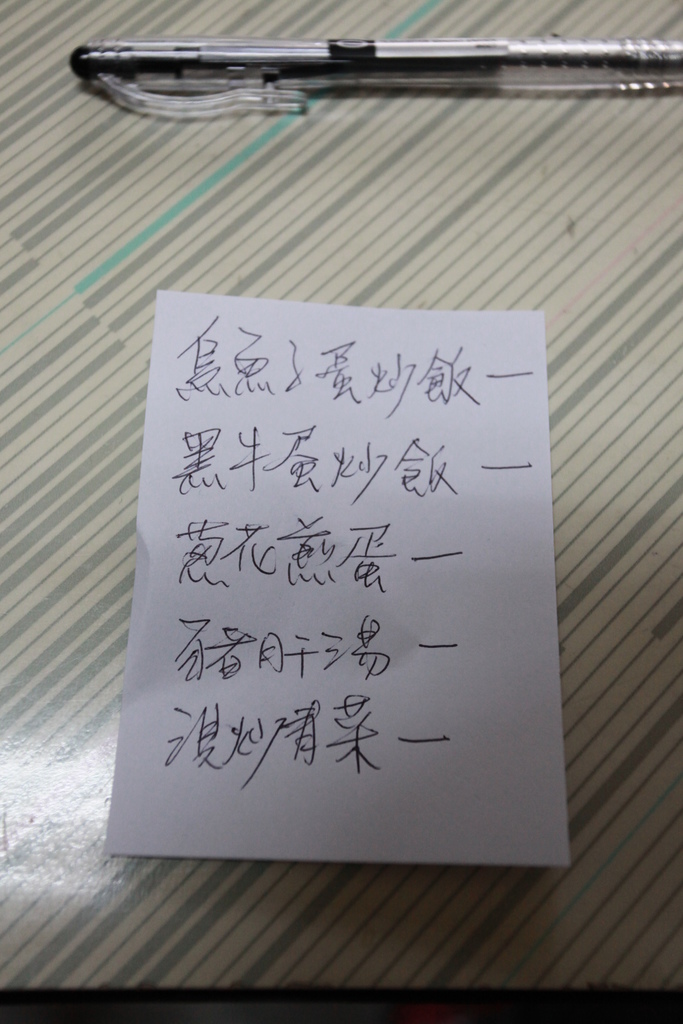 烏魚子蛋炒飯一
黑牛蛋炒飯一
蔥花煎蛋一
豬肝湯一
清炒青菜一